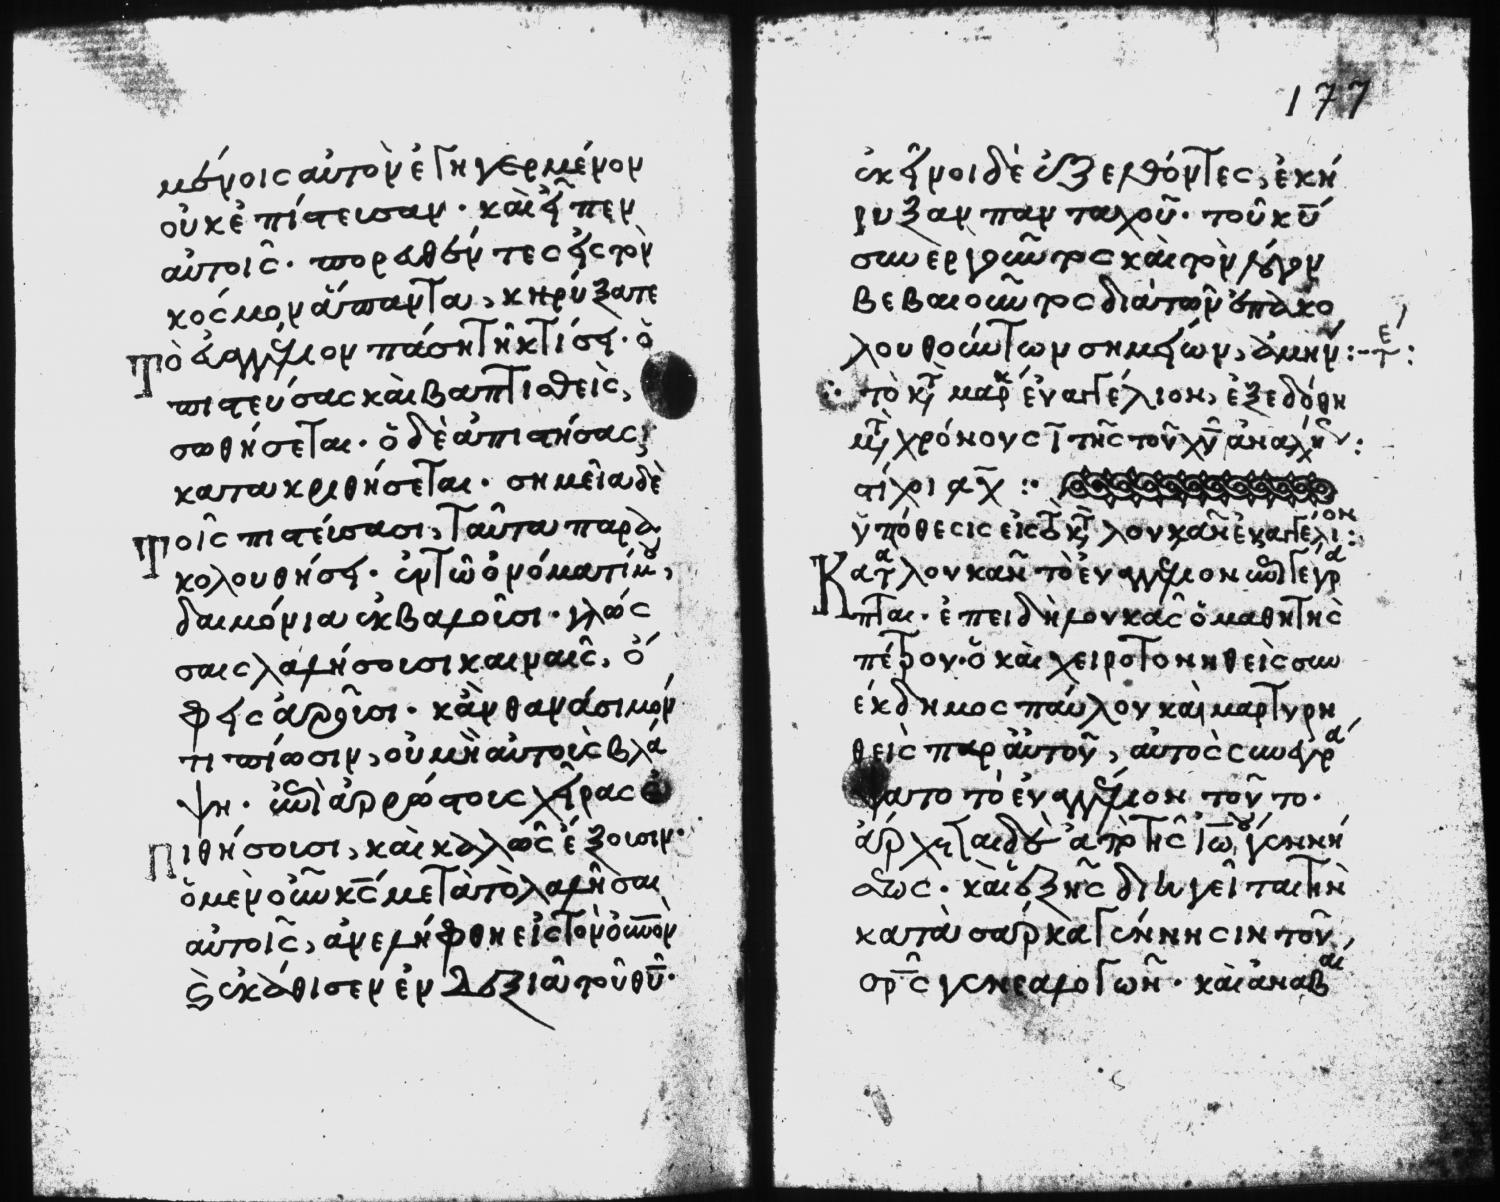 μένοις αὐτὸν ἐγηγερμένον
οὐκ ἐπίστευσαν· καὶ εἶπεν
αὐτοῖς· πορευθέντες εἰς τὸν
κόσμον ἅπαντα, κηρύξατε
τὸ εὐαγγέλιον πάσῃ τῇ κτίσει· ὁ
πιστεύσας καὶ βαπτισθεὶς,
σωθήσεται· ὁ δὲ ἀπιστήσας,
κατακριθήσεται· σημεῖα δὲ
τοῖς πιστεύσασι, ταῦτα παρα
κολουθήσει· ἐν τῷ ὀνόματί μου,
δαιμόνια ἐκβαλοῦσι· γλώσ
σαις λαλήσουσι καιναῖς, ὄ
φεις ἀροῦσι· κἂν θανάσιμόν
τι πίωσιν, οὐ μὴ αὐτοὺς βλά
ψη· ἐπὶ ἀρρώστους χεῖρας ἐ
πιθήσουσι, καὶ καλῶς ἕξουσιν·
ὁ μὲν οὖν κς μετὰ τὸ λαλῆσαι
αὐτοῖς, ἀνελήφθη εἰς τὸν οὐνον
καὶ ἐκάθισεν ἐν δεξιᾶ τοῦ θυ·
177
ἐκεῖνοι δὲ ἐξελθόντες, ἐκή
ρυξαν πανταχοῦ· τοῦ κυ
συνεργοῦντος καὶ τὸν λόγον
βεβαιοῦντος διὰ τῶν ἐπακο
λουθούντων σημείων, ἀμήν:
τὸ κτ μαρκ εὐαγγέλιον, ἐξεδόθη
μτ χρόνους ι τῆς τοῦ χυ ἀναλή
στίχοι αχ :·
ὑπόθεσις εἰς τὸ κτ λουκᾶν εὐαγγέλιον:
Κατὰ λουκᾶν τὸ εὐαγγέλιον ἐπιγέγρα
πται· ἐπειδὴ λουκᾶς ὁ μαθητὴς
πέτρου· ὁ καὶ χειροτονηθεὶς συν
έκδημος παύλου καὶ μαρτυρη
θεὶς παρ αὐτοῦ, αὐτὸς συνεγρά
ψατο τὸ εὐαγγέλιον τοῦτο·
ἄρχεται δὲ ἀπὸ τῆς ἰωου γεννή
σεως· καὶ ἑξῆς διηγεῖται τὴν
κατὰ σάρκα γέννησιν τοῦ
σρς γενεαλογῶν· καὶ ἀναβαι